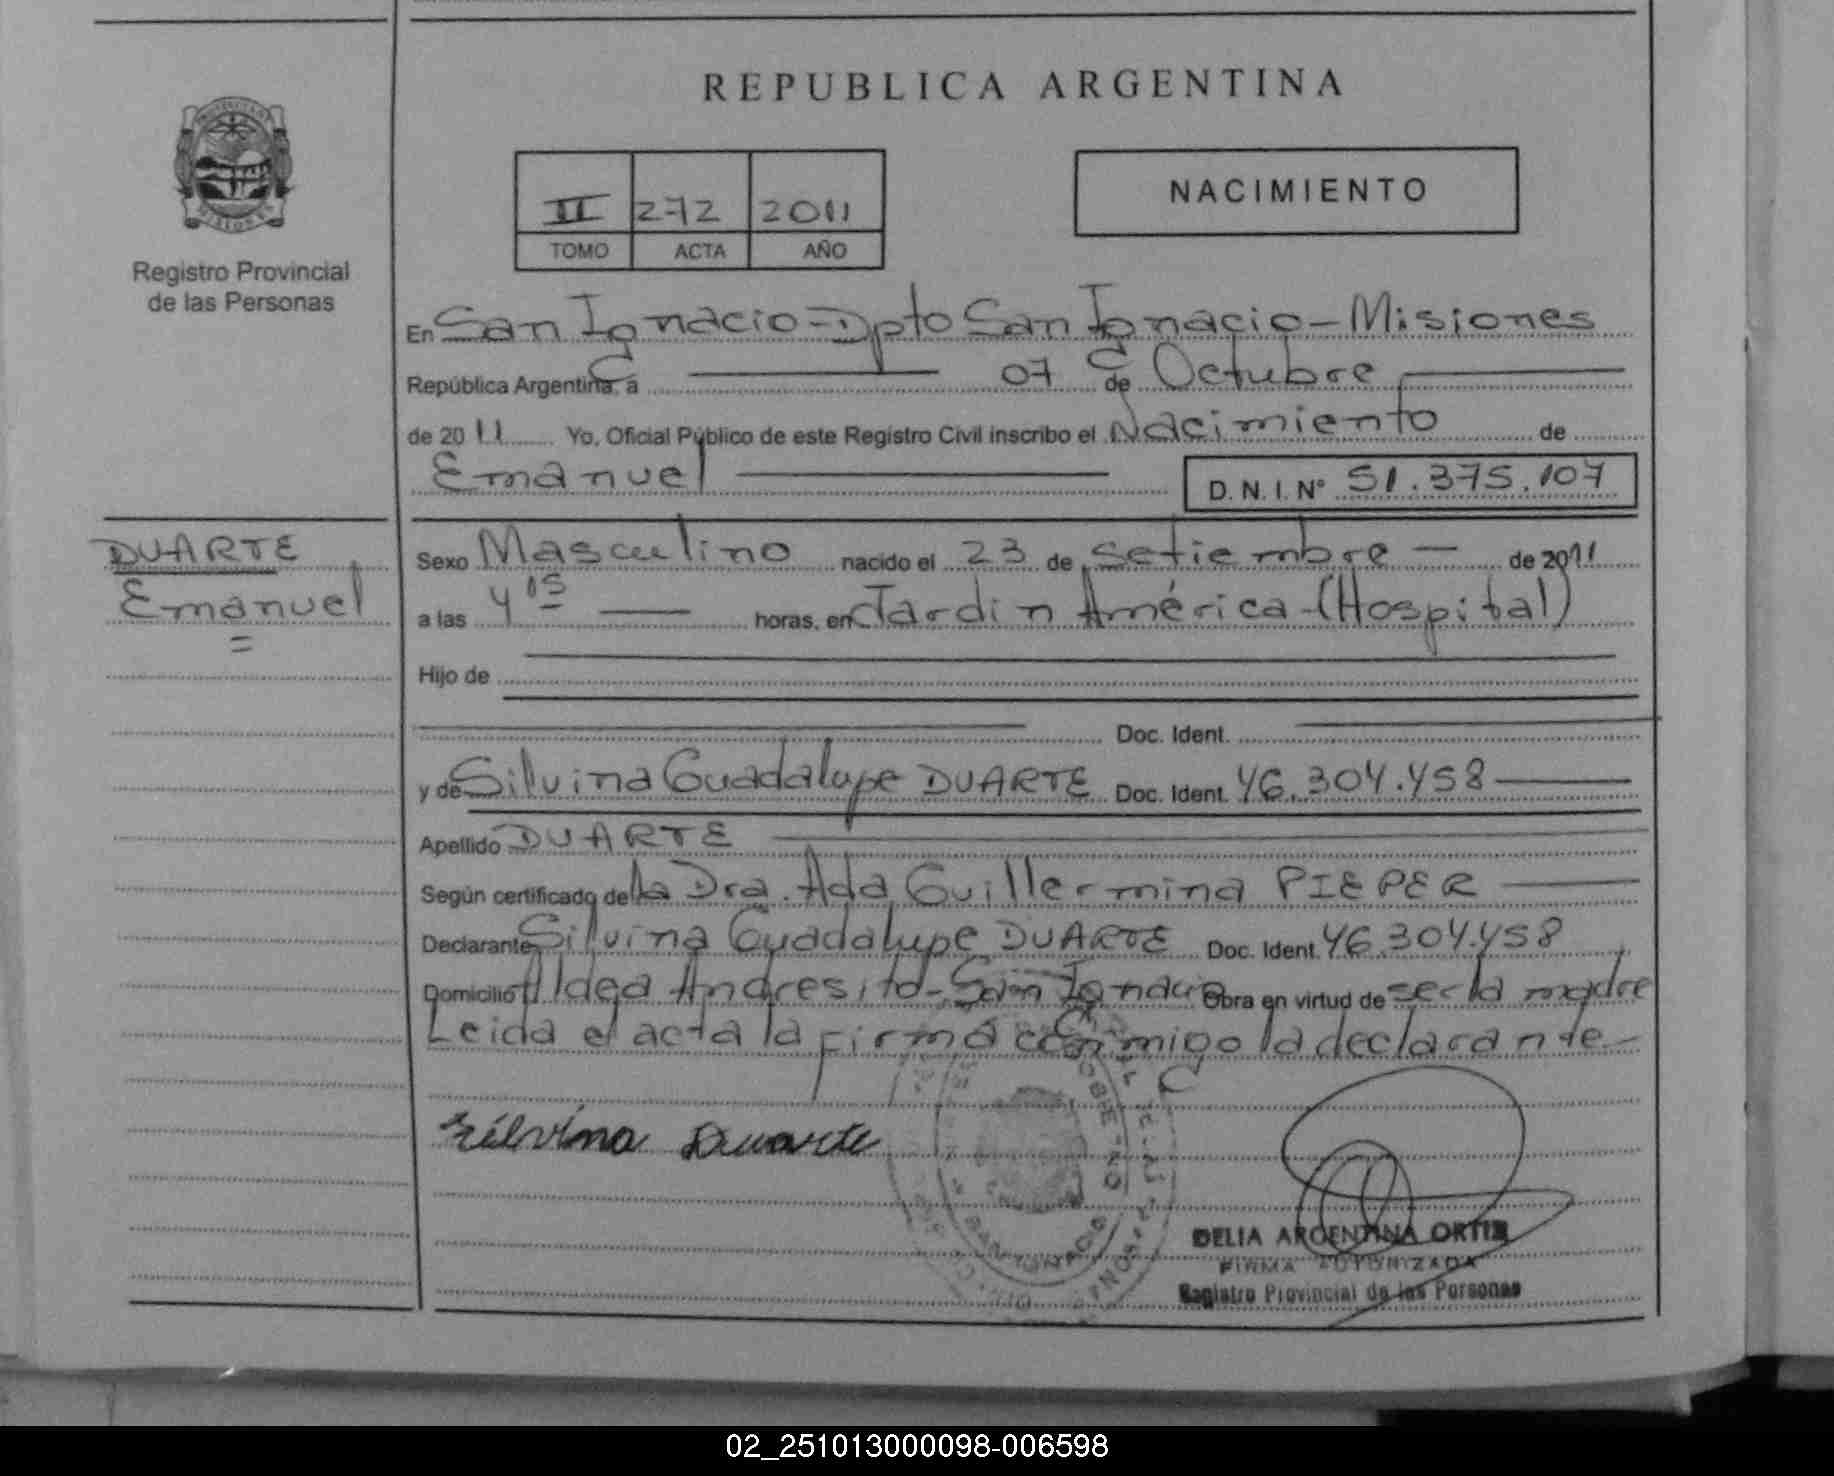 REPUBLICA ARGENTINA
II 272 2011
TOMO ACTA AÑO
NACIMIENTO
MISIONES
Registro Provincial
de las Personas
En San Ignacio - Dpto San Ignacio - Misiones
República Argentina, a 07 de Octubre
de 2011 Yo, Oficial Público de este Registro Civil inscribo el Nacimiento de
Emanuel D.N.I. Nº 51.375.107
DUARTE
Emanuel
Sexo Masculino nacido el 23 de Setiembre de 2011
a las 4 15 horas, en Jardin América - (Hospital)
Hijo de
Doc. Ident.
y de Silvina Guadalupe DUARTE Doc. Ident. 46.304.458
Apellido DUARTE
Según certificado de la Dra. Ada Guillermina PIEPER
Declarante Silvina Guadalupe DUARTE Doc. Ident. 46.304.458
Domicilio Aldea Andresito - San Ignacio Obra en virtud de ser la madre
Leida el acta la firma conmigo la declarante
Silvina Duarte
DELIA ARGENTINA ORTIZ
FIRMA AUTORIZADA
Registro Provincial de las Personas
02_251013000098-006598